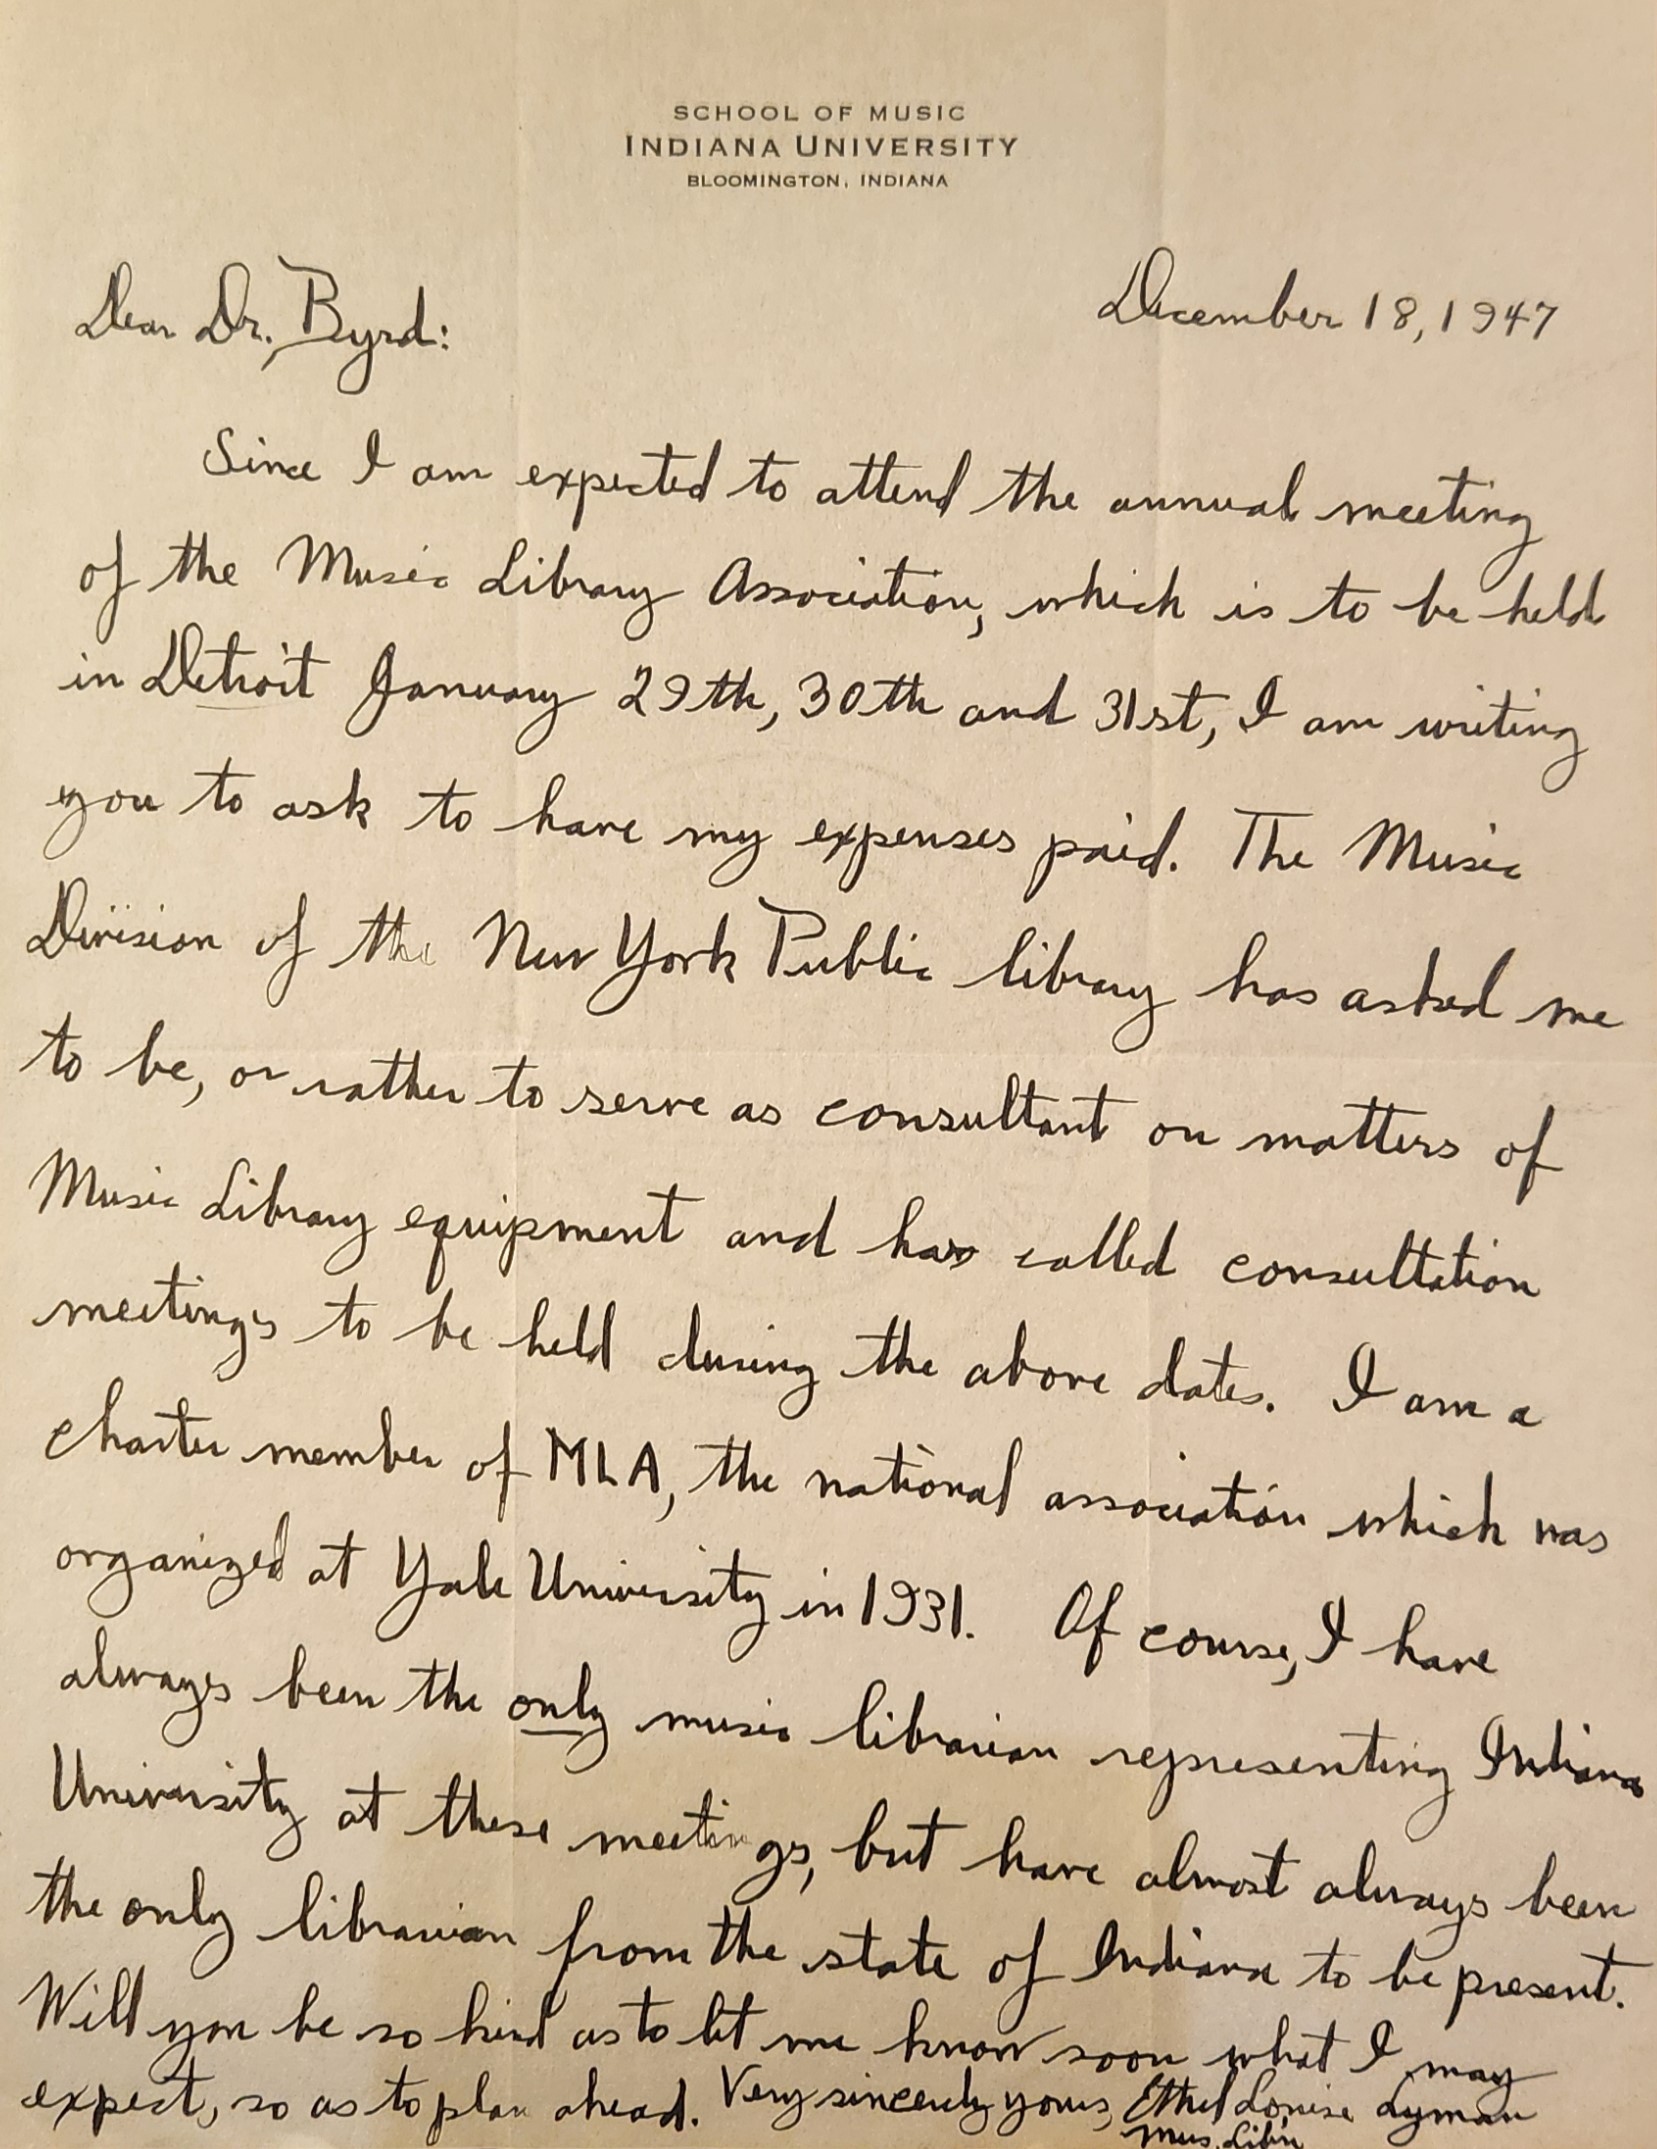 SCHOOL OF MUSIC
INDIANA UNIVERSITY
BLOOMINGTON, INDIANA
December 18, 1947
Dear Dr. Byrd:
Since I am expected to attend the annual meeting
of the Music Library Association, which is to be held
in Detroit January 29th, 30th and 31st, I am writing
you to ask to have my expenses paid. The Music
Division of the New York Public library has asked me
to be, or rather to serve as consultant on matters of
Music Library equipment and has called consultation
meetings to be held during the above dates. I am a
charter member of MLA, the national association which was
organized at Yale University in 1931. Of course, I have
always been the only music librarian representing Indiana
University at these meetings, but have almost always been
the only librarian from the state of Indiana to be present.
Will you be so kind as to let me know soon what I may
expect, so as to plan ahead. Very sincerely yours, Ethel Louise Lyman
Mus. Libn